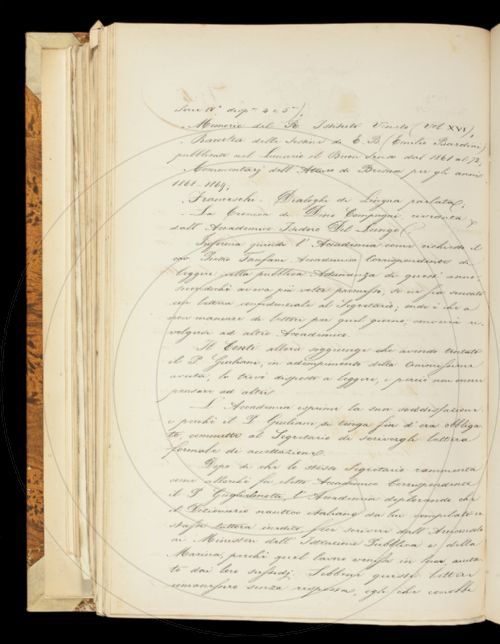 Serie IIª disp.ⁿ 4 e 5ⁿ);
Memorie del R. Istituto Veneto (Vol XVI);
Raccolta delle Lezioni di E. B. (Emilio
pubblicate nel Lunario il Buon Senso dal 1861 al 72;
Commentarj dell'Ateneo di Brescia per gli anni
1868-1869;
Franceschi. Dialoghi di Lingua parlata;
La Cronaca di Dino Compagni, riveduta
dall'Accademico Isidoro Del Lungo.
Informa quindi l'Accademia come richiesto il
cav. Pietro Fanfani Accademico Corrispondente di
leggere nella pubblica Adunanza di quest'anno
aveva più volte promesso, se ne sia scusato
con lettera confidenziale al Segretario; onde è che a
non mancare di lettori per quel giorno, conviene ri-
volgersi ad altro Accademico.
Il Conti allora soggiunge che avendo tentato
il P. Giuliani, in adempimento della Commissione
avuta, lo trovò disposto a leggere, e perciò non
pensare ad altri.
L'Accademia esprime la sua soddisfazione
e perché il P. Giuliani si tenga fin d'ora obbliga-
to, commette al Segretario di scrivergli lettera
formale di accettazione.
Dopo di che lo stesso Segretario rammenta
come allorché fu eletto Accademico Corrispondente
il P. Guglielmotti, l'Accademia deplorando che
il Dizionario nautico italiano da lui compilato
tuttora inedito, fece scrivere dall'Arciconsolo
ai Ministri dell'Istruzione Pubblica e della
Marina, perché quel lavoro venisse in luce, aiuta-
to dai loro sussidj. Sebbene queste lettere
rimanessero senza risposta, egli che